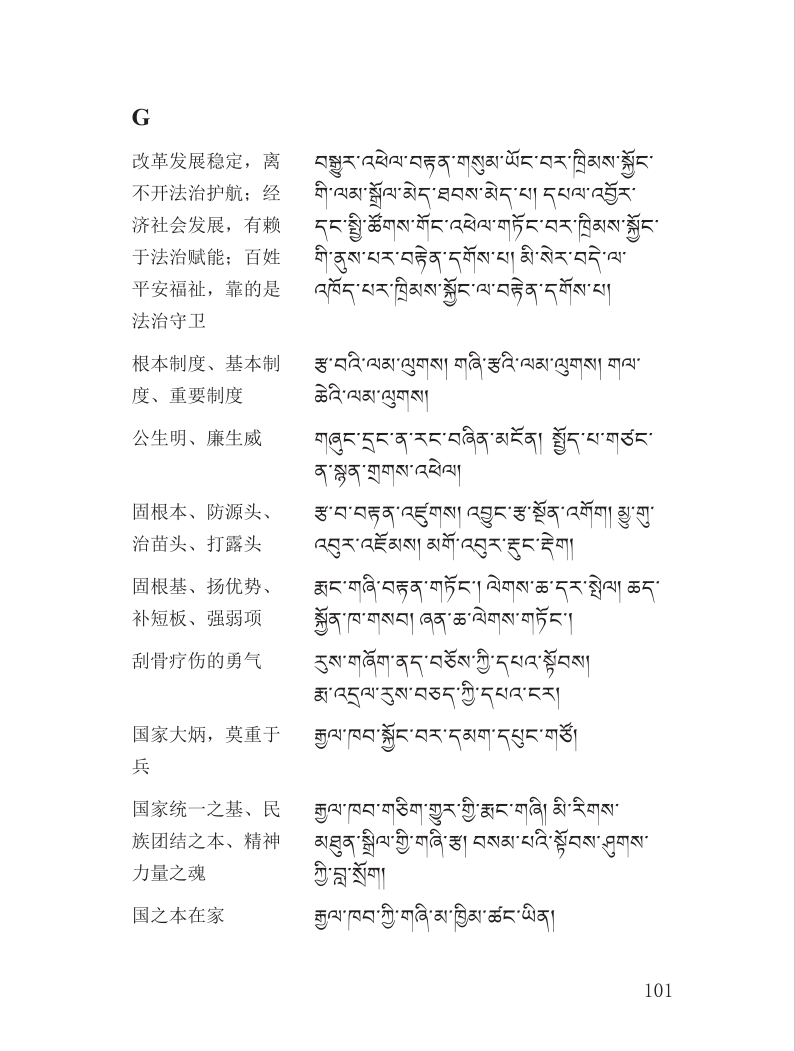 G
改革发展稳定，离 བསྒྱུར་འཕེལ་བརྟན་གསུམ་ཡོང་བར་ཁྲིམས་སྐྱོང་
不开法治护航；经 གི་ལམ་སྒྲོལ་མེད་ཐབས་མེད་པ། དཔལ་འབྱོར་
济社会发展，有赖 དང་སྤྱི་ཚོགས་གོང་འཕེལ་གཏོང་བར་ཁྲིམས་སྐྱོང་
于法治赋能；百姓 གི་ནུས་པར་བརྟེན་དགོས་པ། མི་སེར་བདེ་ལ་
平安福祉，靠的是 འཁོད་པར་ཁྲིམས་སྐྱོང་ལ་བརྟེན་དགོས་པ།
法治守卫
根本制度、基本制 རྩ་བའི་ལམ་ལུགས། གཞི་རྩའི་ལམ་ལུགས། གལ་
度、重要制度 ཆེའི་ལམ་ལུགས།
公生明、廉生威 གཞུང་དྲང་ན་རང་བཞིན་མངོན། སྤྱོད་པ་གཙང་
ན་སྙན་གྲགས་འཕེལ།
固根本、防源头、 རྩ་བ་བརྟན་འཛུགས། འབྱུང་རྩ་སྔོན་འགོག མྱུ་གུ་
治苗头、打露头 འབུར་འཇོམས། མགོ་འབུར་རྡུང་རྡེག
固根基、扬优势、 རྨང་གཞི་བརྟན་གཏོང་། ལེགས་ཆ་དར་སྤེལ། ཆད་
补短板、强弱项 སྐྱོན་ཁ་གསབ། ཞན་ཆ་ལེགས་གཏོང་།
刮骨疗伤的勇气 རུས་གཞོག་ནད་བཅོས་ཀྱི་དཔའ་སྟོབས།
རྨ་འདྲལ་རུས་བཅད་ཀྱི་དཔའ་ངར།
国家大炳，莫重于 རྒྱལ་ཁབ་སྐྱོང་བར་དམག་དཔུང་གཙོ།
兵
国家统一之基、民 རྒྱལ་ཁབ་གཅིག་གྱུར་གྱི་རྨང་གཞི། མི་རིགས་
族团结之本、精神 མཐུན་སྒྲིལ་གྱི་གཞི་རྩ། བསམ་པའི་སྟོབས་ཤུགས་
力量之魂 ཀྱི་བླ་སྲོག
国之本在家 རྒྱལ་ཁབ་ཀྱི་གཞི་མ་ཁྱིམ་ཚང་ཡིན།
101